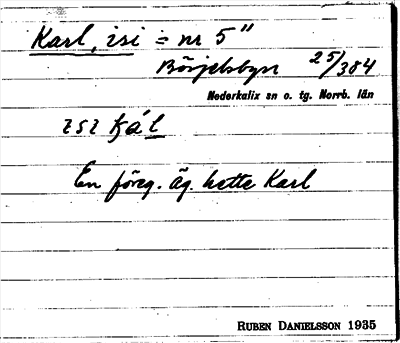 Karl, isi = nr 5"
Börjelsbyn 25/384
Nederkalix sn o. tg. Norrb. län
ɩsɩ kál
En föreg. äg. hette Karl
RUBEN DANIELSSON 1935